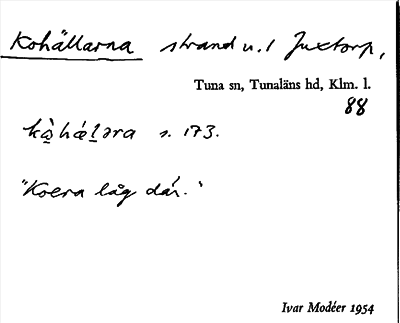 Kohällarna strand u. 1 Juxtorp,
Tuna sn, Tunaläns hd, Klm. l.
88
s. 173.
"Koera låg där."
Ivar Modéer 1954